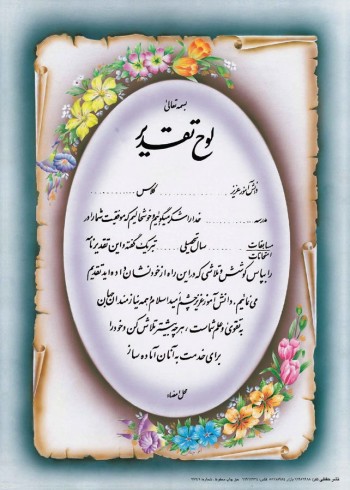 بسمه تعالی
لوح تقدیر
دانش آموز عزیز ........ کلاس ........
مدرسه ........ خدا را شکر میگوئیم و خوشحالیم که موفقیت شما را در
مسابقات
امتحانات
سال تحصیلی ........ تبریک گفته و این تقدیرنامه
را بپاس کوشش و تلاشی که در این راه از خود نشان داده اید تقدیم
می نمائیم . دانش آموز عزیز چشم امید اسلام و همه نیازمندان جهان
به تقوی و علم شماست ، هر چه بیشتر تلاش کن و خود را
برای خدمت به آنان آماده ساز
محل امضاء